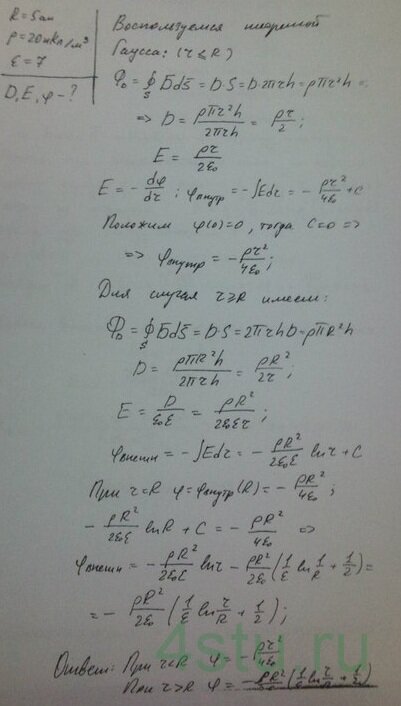 R = 5см
ρ = 20мкКл/м³
ε = 7
D, E, φ - ?
Воспользуемся теоремой
Гаусса: (r ≤ R)
Φ_D = ∮_S D̄ds̄ = D·S = D·2πrh = ρπr²h =
=> D = ρπr²h / 2πrh = ρr / 2 ;
E = ρr / 2ε₀
E = - dφ/dr ; φ_внутр = -∫Edr = - ρr²/4ε₀ + C
Положим φ(0)=0, тогда C=0 =>
=> φ_внутр = - ρr²/4ε₀ ;
Для случая r ≥ R имеем:
Φ_D = ∮_S D̄ds̄ = D·S = 2πrhD = ρπR²h
D = ρπR²h / 2πrh = ρR² / 2r ;
E = D / ε₀ε = ρR² / 2ε₀εr ;
φ_внешн = -∫Edr = - ρR²/2ε₀ε ln r + C
При r=R φ = φ_внутр(R) = - ρR²/4ε₀ ;
- ρR²/2ε₀ε ln R + C = - ρR²/4ε₀ =>
φ_внешн = - ρR²/2ε₀ε ln r - ρR²/2ε₀ (1/ε ln 1/R + 1/2) =
= - ρR²/2ε₀ (1/ε ln r/R + 1/2) ;
Ответ: При r<R φ = - ρr²/4ε₀
При r>R φ = - ρR²/2ε₀ (1/ε ln r/R + 1/2)
4stu.ru